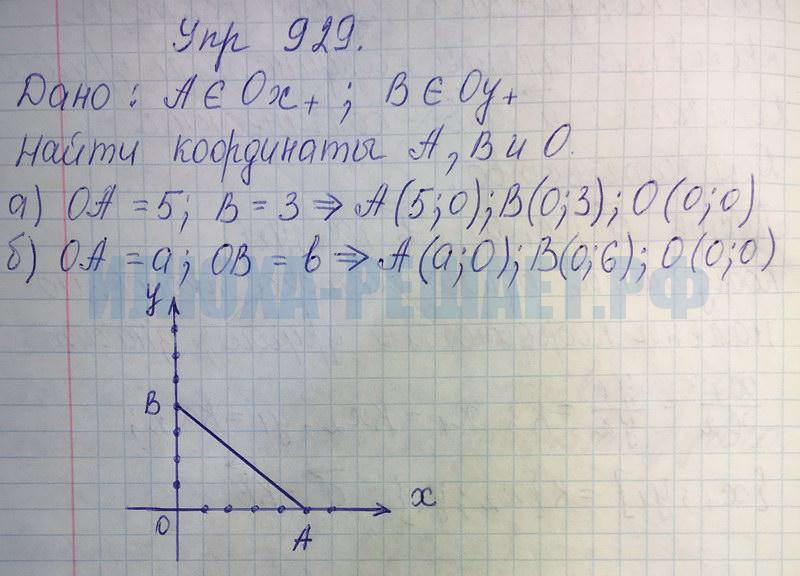 Упр 929.
Дано: A ∈ Ox+; B ∈ Oy+
Найти координаты A, B и O.
а) OA = 5; B = 3 ⇒ A(5;0); B(0;3); O(0;0)
б) OA = a; OB = b ⇒ A(a;0); B(0;б); O(0;0)
ИЛЮХА-РЕШАЕТ.РФ
y
B
x
O
A